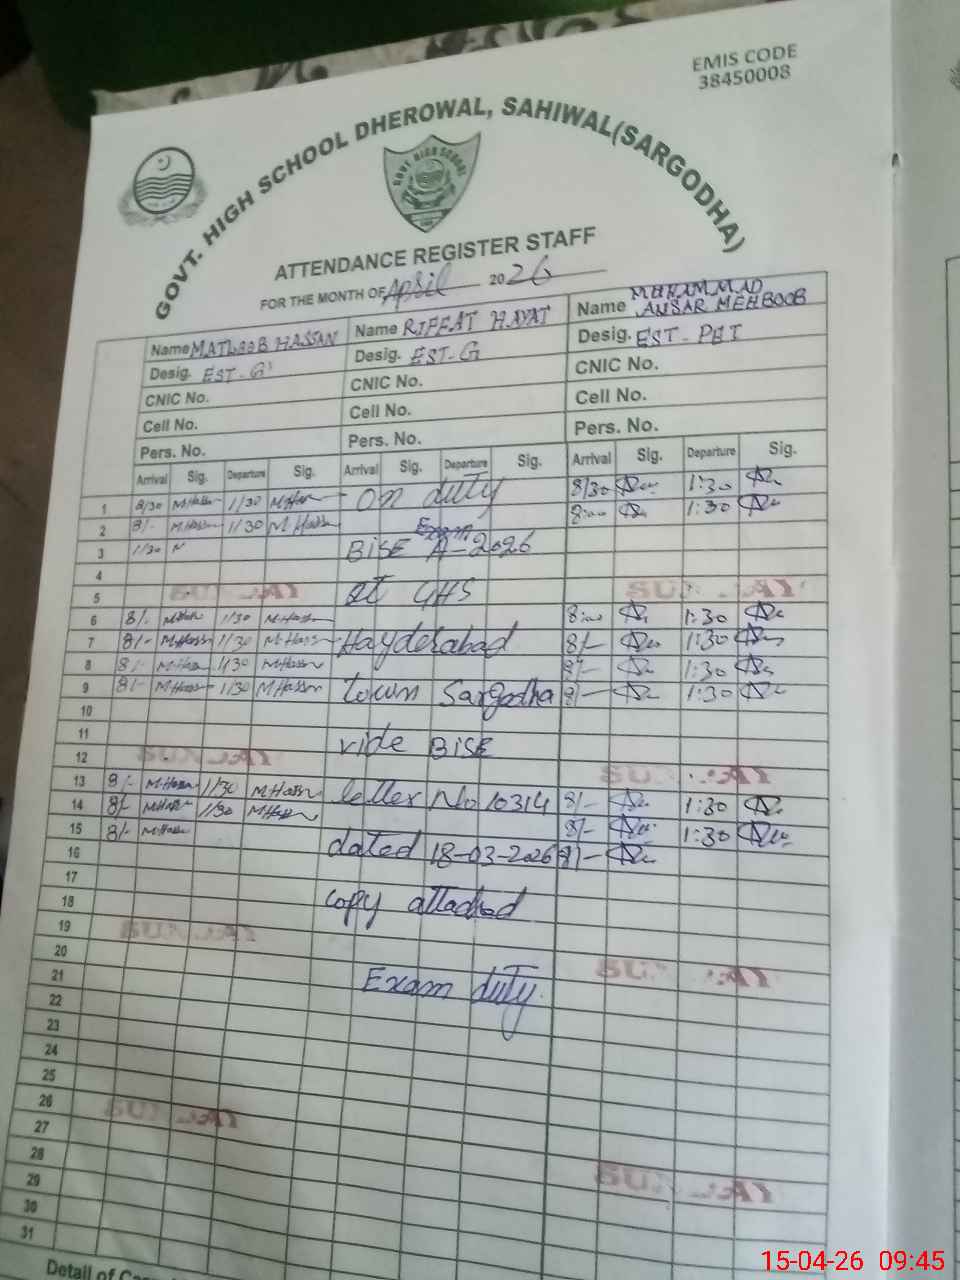 EMIS CODE
38450008
GOVT. HIGH SCHOOL DHEROWAL, SAHIWAL(SARGODHA)
GOVT. HIGH SCHOOL
ATTENDANCE REGISTER STAFF
FOR THE MONTH OF April 2026
Name MATLOOB HASSAN Name RIFFAT HAYAT Name MUHAMMAD ANSAR MEHBOOB
Desig. EST-G Desig. EST-G Desig. EST-PET
CNIC No. CNIC No. CNIC No.
Cell No. Cell No. Cell No.
Pers. No. Pers. No. Pers. No.
Arrival Sig. Departure Sig. Arrival Sig. Departure Sig. Arrival Sig. Departure Sig.
1 8/30 M.Hassn 1/30 On duty 8/30 1:30
2 8/- M.Hassn 1/30 M Hassn Exam 8:00 1:30
3 1/30 BISE A-2026
4
5 at GHS
6 8/- 1/30 M.Hassn 8:00 1:30
7 8/- M.Hassn 1/30 M.Hassn Hayderabad 8/- 1:30
8 8/- 1/30 M.Hassn 8/- 1:30
9 8/- M.Hassn 1/30 M.Hassn town Sargodha 8/- 1:30
10
11 vide BISE
12
13 8/- M.Hassn 1/30 M.Hassn letter No 10314 8/- 1:30
14 8/- 1/30 M.Hassn 8/- 1:30
15 8/- dated 18-03-2026 8/-
16
17
18 copy attached
19
20
21 Exam duty.
22
23
24
25
26
27
28
29
30
31
Detail of
15-04-26 09:45